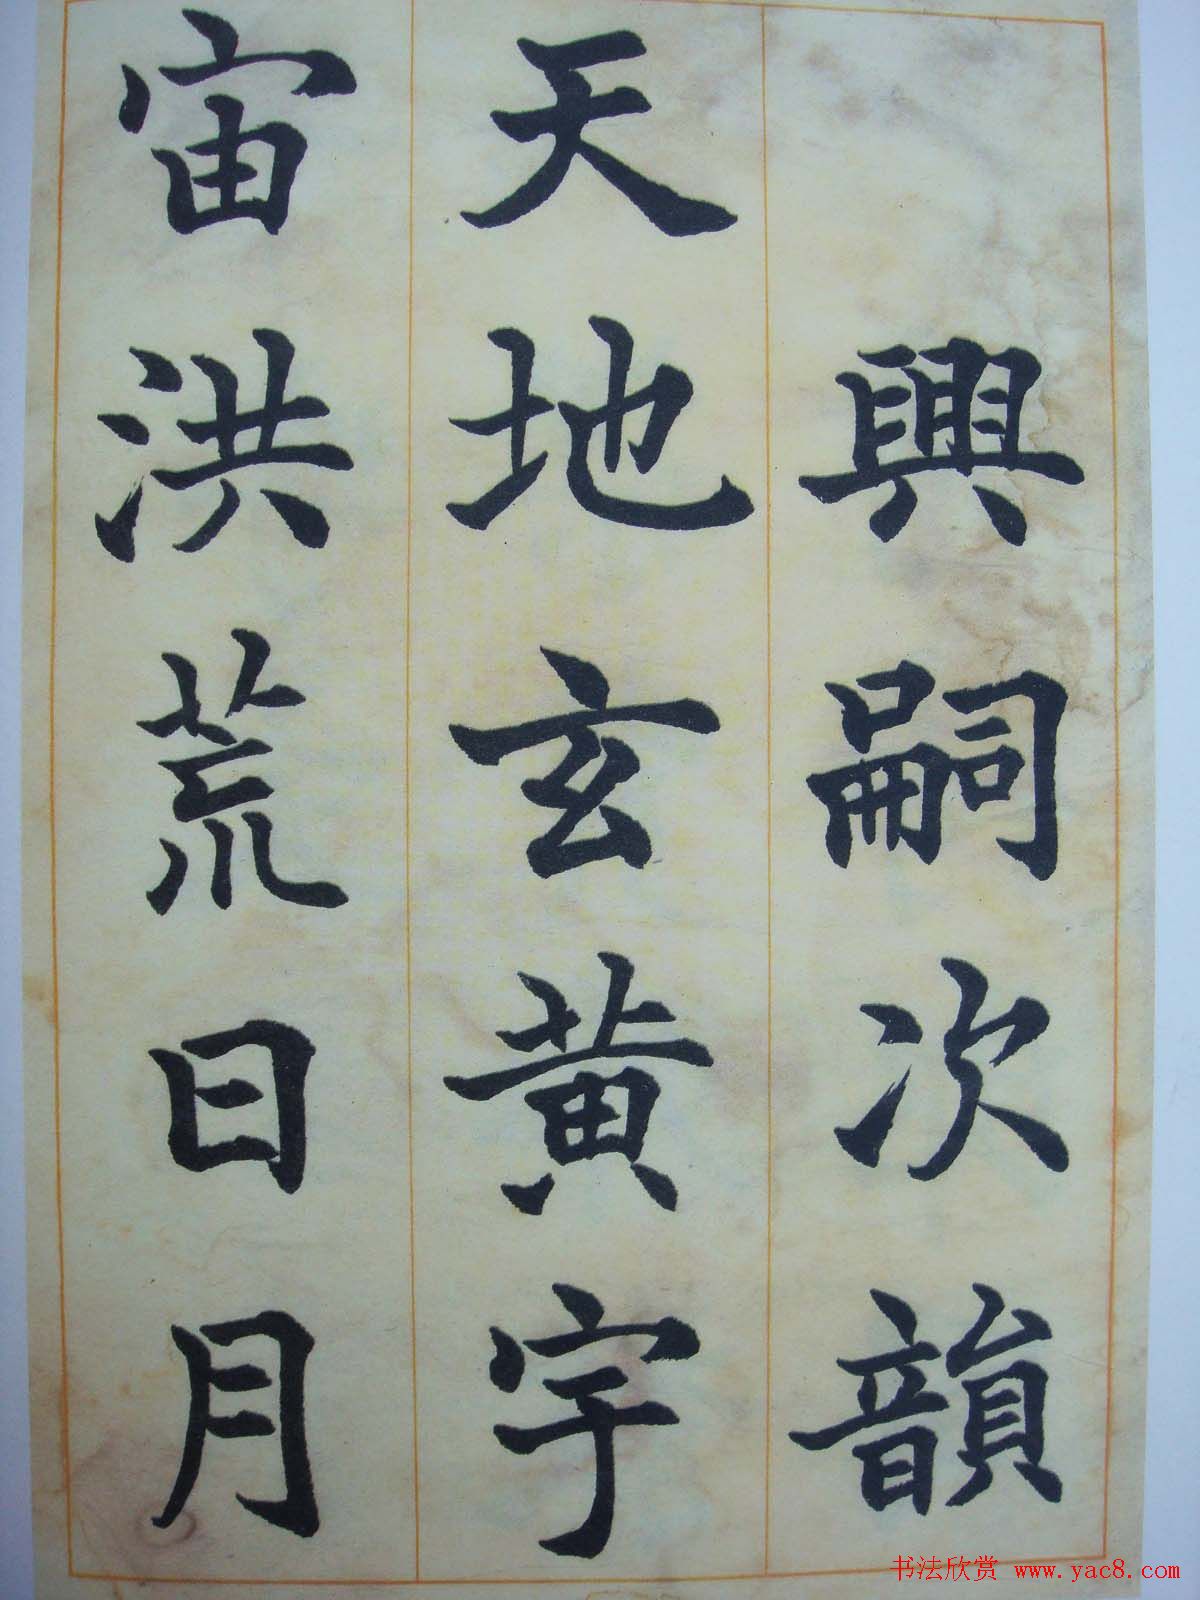 興嗣次韻
天地玄黃宇
宙洪荒日月
书法欣赏 www.yac8.com